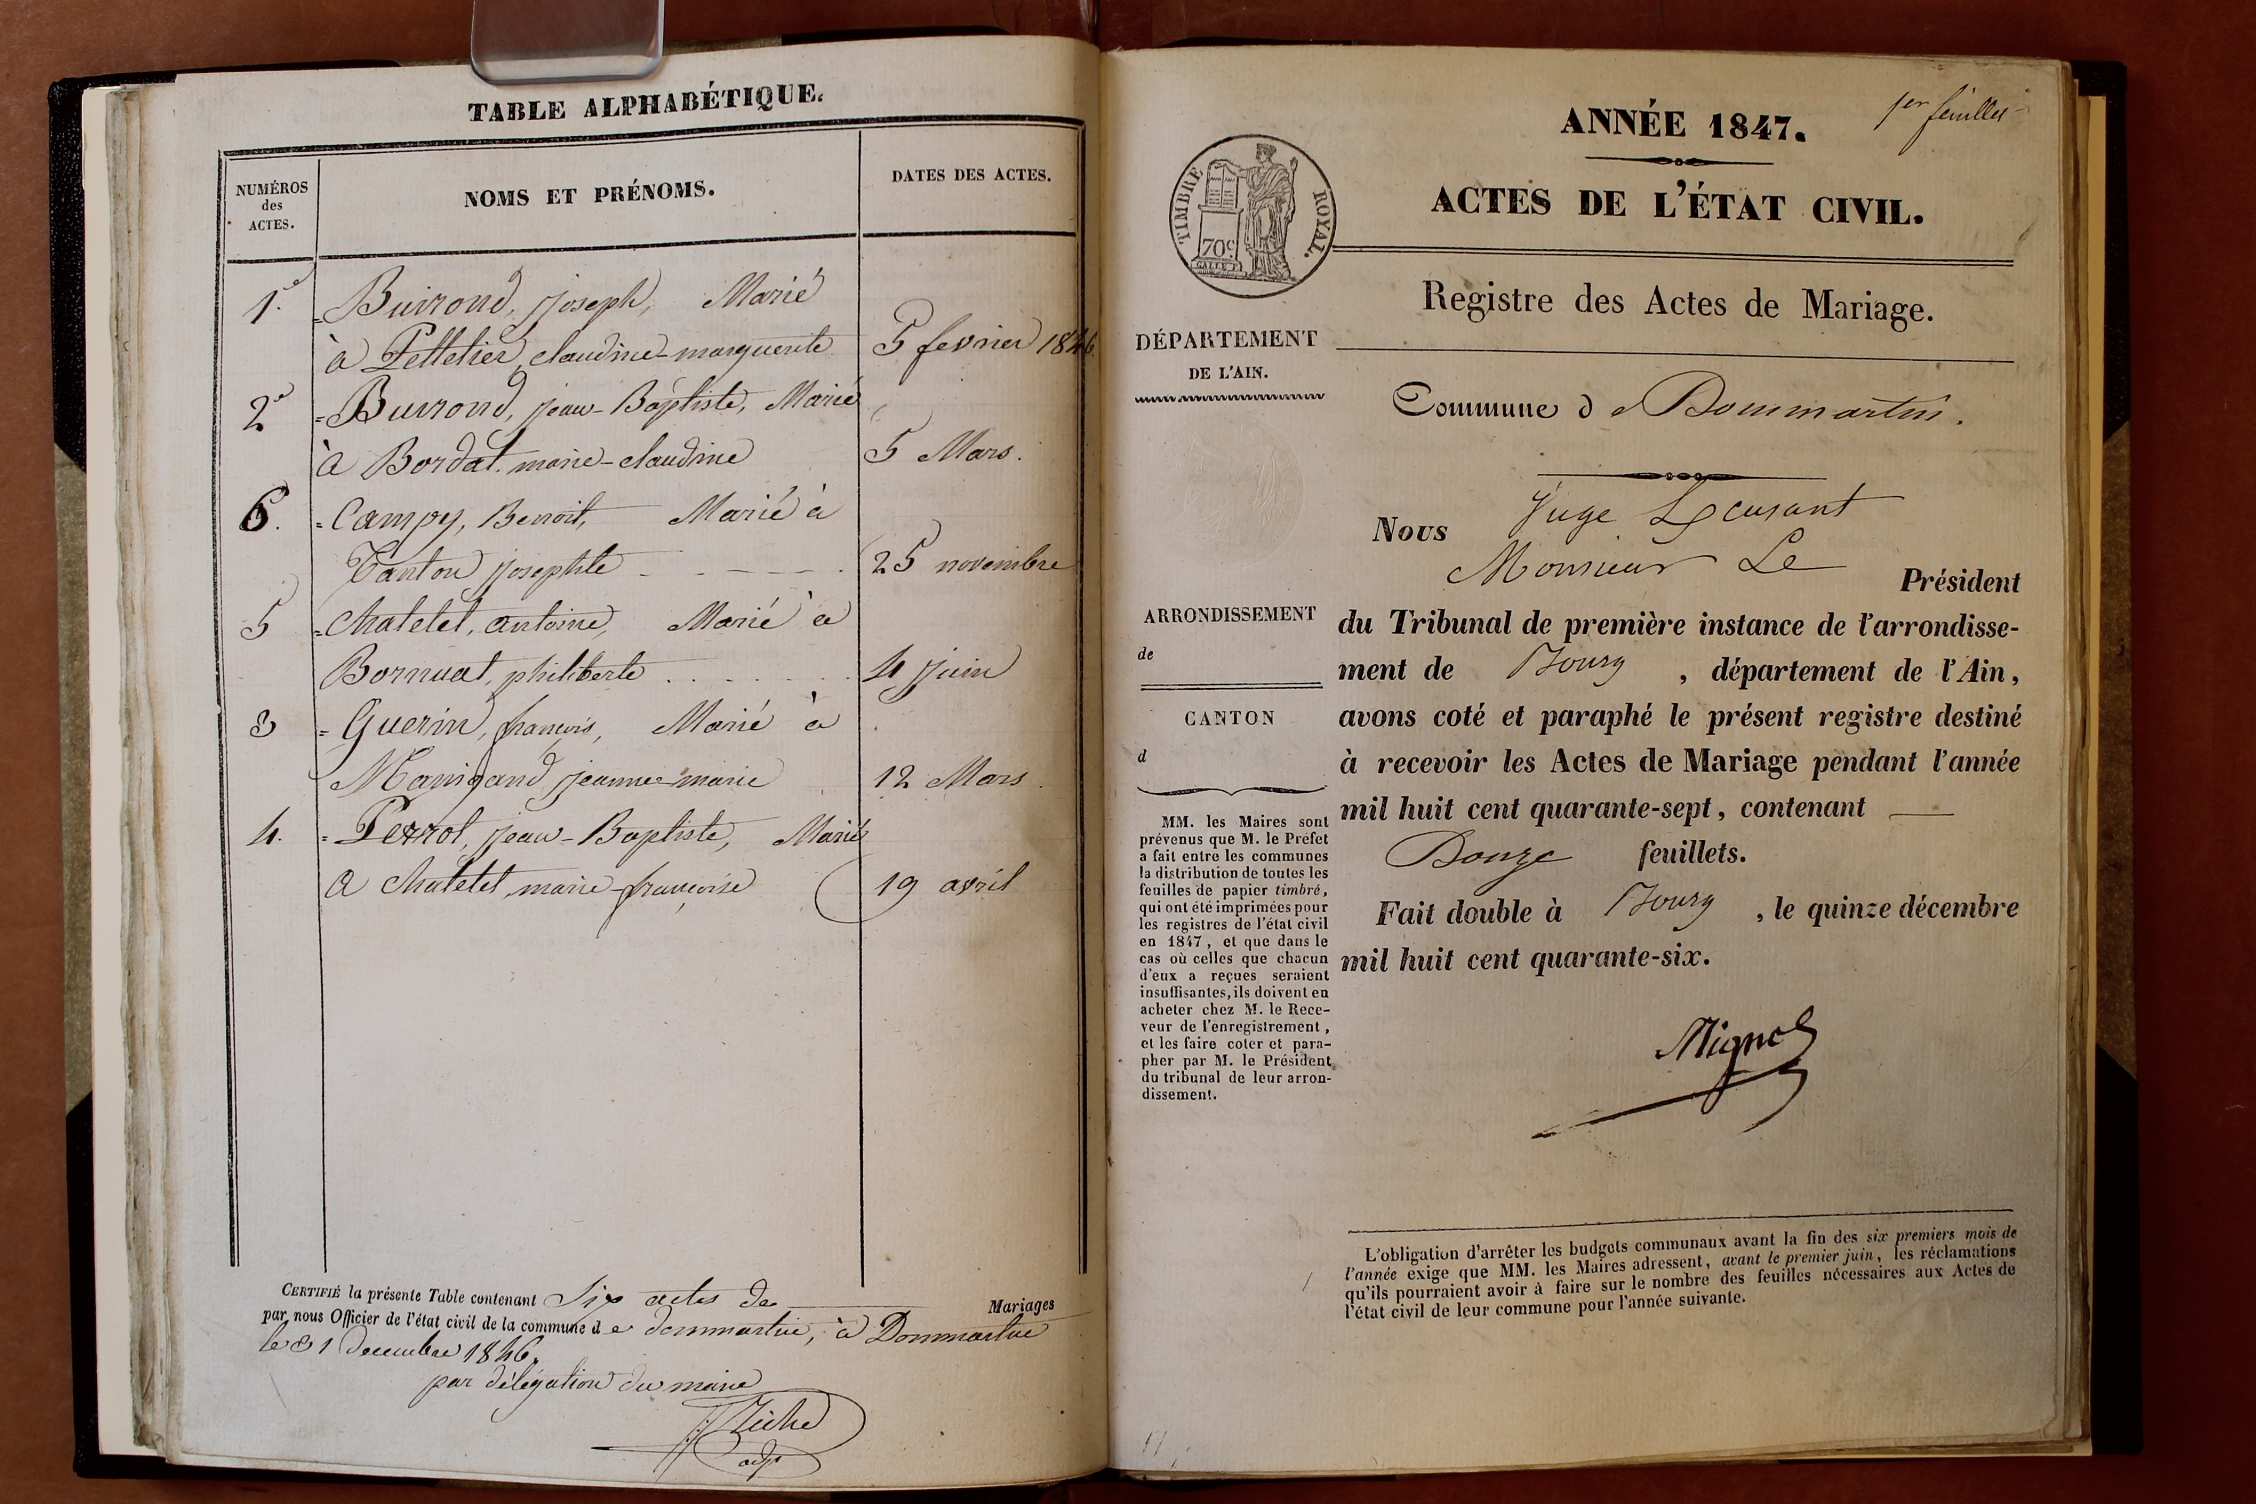 TABLE ALPHABÉTIQUE.
NUMÉROS
des
ACTES.
NOMS ET PRÉNOMS.
DATES DES ACTES.
1.e = Buirond, joseph, Marié
à Pelletier, claudine-marguerite 5 fevrier 1846
2e = Buirond, jean-Baptiste, Marié
à Bordat marie-claudine 5 Mars.
6. = Campy, Benoit, Marié à
Tanton josephte 25 novembre
5 = chatelet, antoine, Marié à
Bornuat, philiberte . . . . . . . 4 juin
3 = Guerin, francois, Marié à
Manigand jeanne-marie 12 Mars
4. = Perrot, jean-Baptiste, Marié
a chatelet marie-françoise 19 avril
CERTIFIÉ la présente Table contenant Six actes de Mariages
par nous Officier de l'état civil de la commune d e dommartin, à Dommartin
le 31 decembre 1846.
par délégation du maire
adjt
1er feuillet
ANNÉE 1847.
ACTES DE L'ÉTAT CIVIL.
TIMBRE ROYAL.
70c
Registre des Actes de Mariage.
DÉPARTEMENT
DE L'AIN.
Commune d e Dommartin.
Nous Juge
Monsieur Le Président
ARRONDISSEMENT
de
CANTON
d
du Tribunal de première instance de l'arrondisse-
ment de Bourg, département de l'Ain,
avons coté et paraphé le présent registre destiné
à recevoir les Actes de Mariage pendant l'année
mil huit cent quarante-sept, contenant
Douze feuillets.
Fait double à Bourg, le quinze décembre
mil huit cent quarante-six.
MM. les Maires sont
prévenus que M. le Préfet
a fait entre les communes
la distribution de toutes les
feuilles de papier timbré,
qui ont été imprimées pour
les registres de l'état civil
en 1847, et que dans le
cas où celles que chacun
d'eux a reçues seraient
insuffisantes, ils doivent en
acheter chez M. le Rece-
veur de l'enregistrement,
et les faire coter et para-
pher par M. le Président
du tribunal de leur arron-
dissement.
L'obligation d'arrêter les budgets communaux avant la fin des six premiers mois de
l'année exige que MM. les Maires adressent, avant le premier juin, les réclamations
qu'ils pourraient avoir à faire sur le nombre des feuilles nécessaires aux Actes de
l'état civil de leur commune pour l'année suivante.